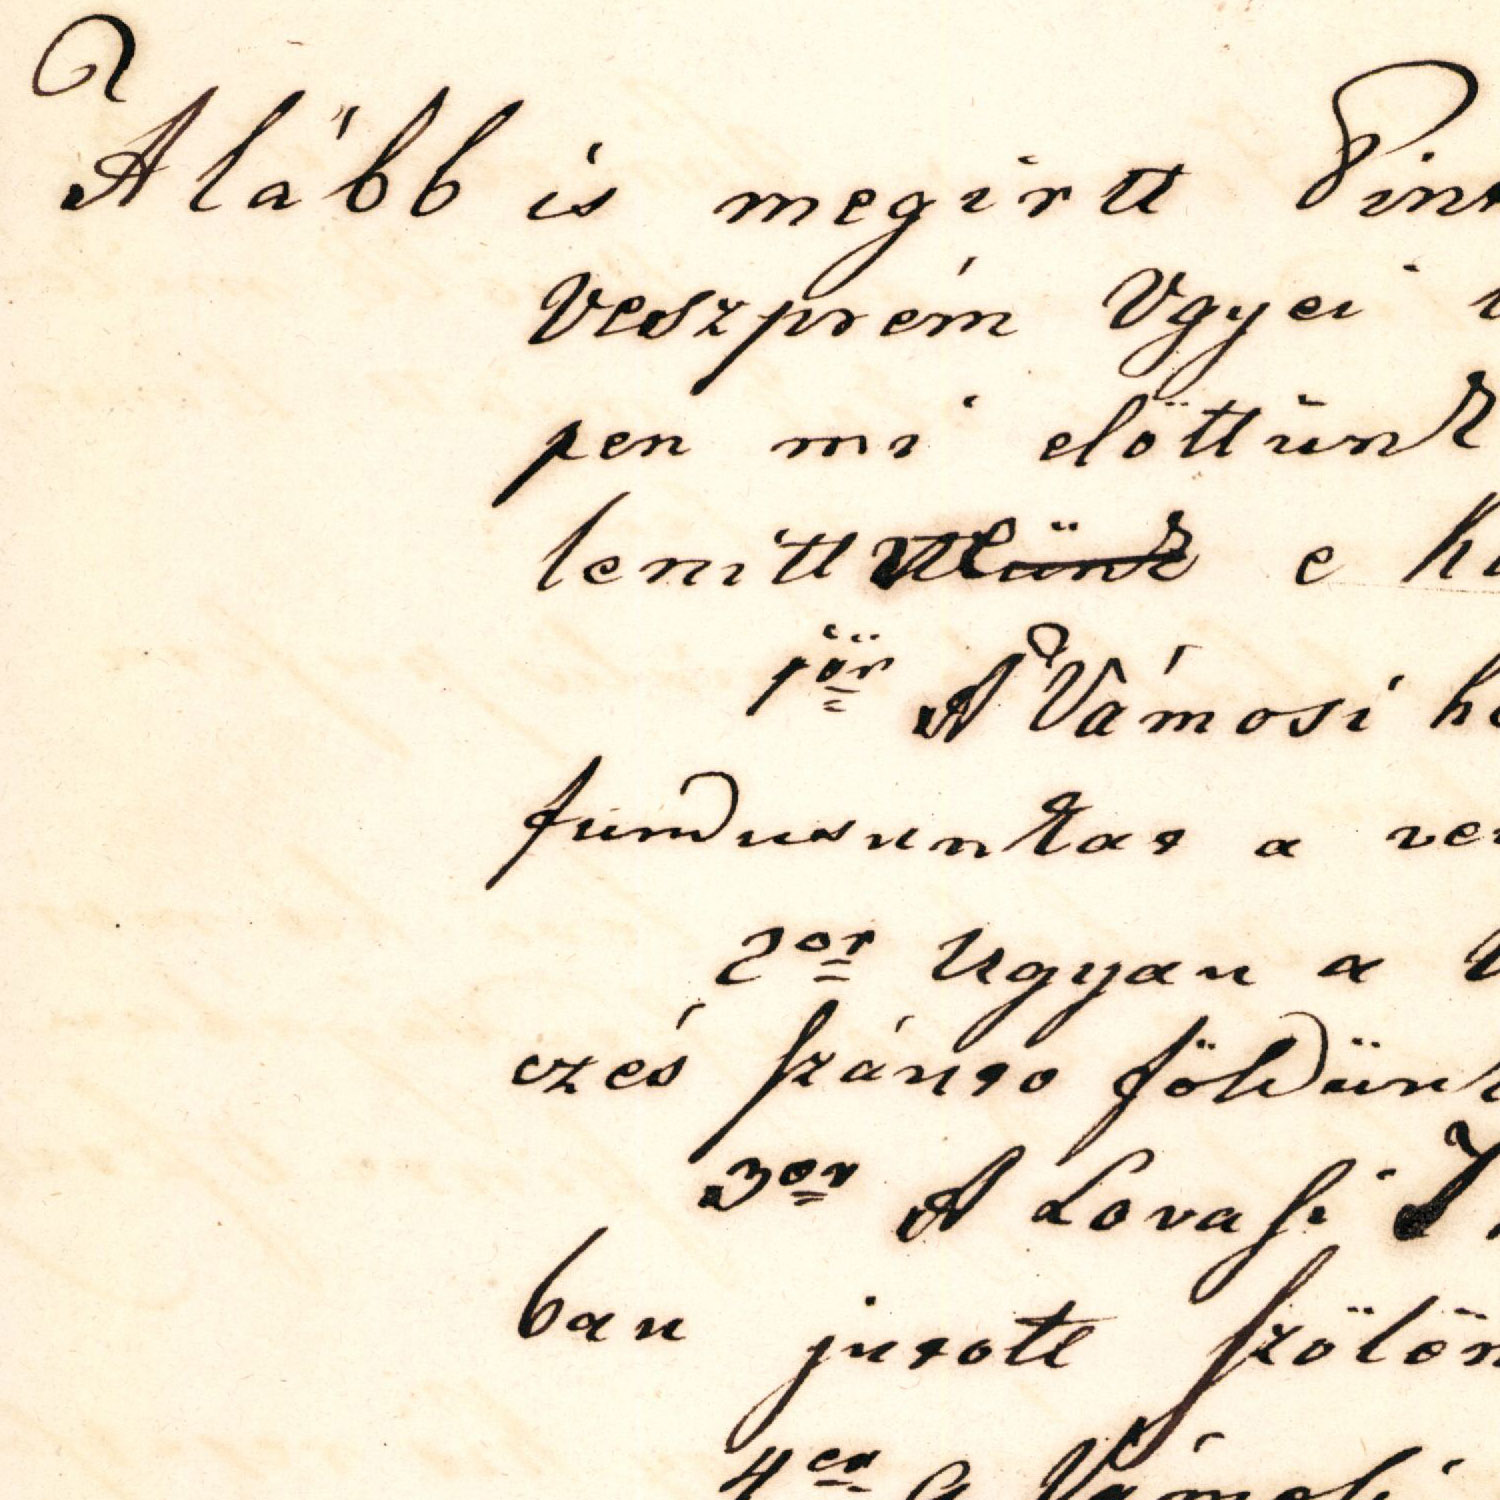 Alább is megirtt
Veszprém Vgyei
pen mi elöttünk
lenitt e
1ör A Vámosi
fundusunkat a
2or Ugyan a
czés szánto földünk
3or A Lovasi
ban jutott szölön
4er a Vámosi